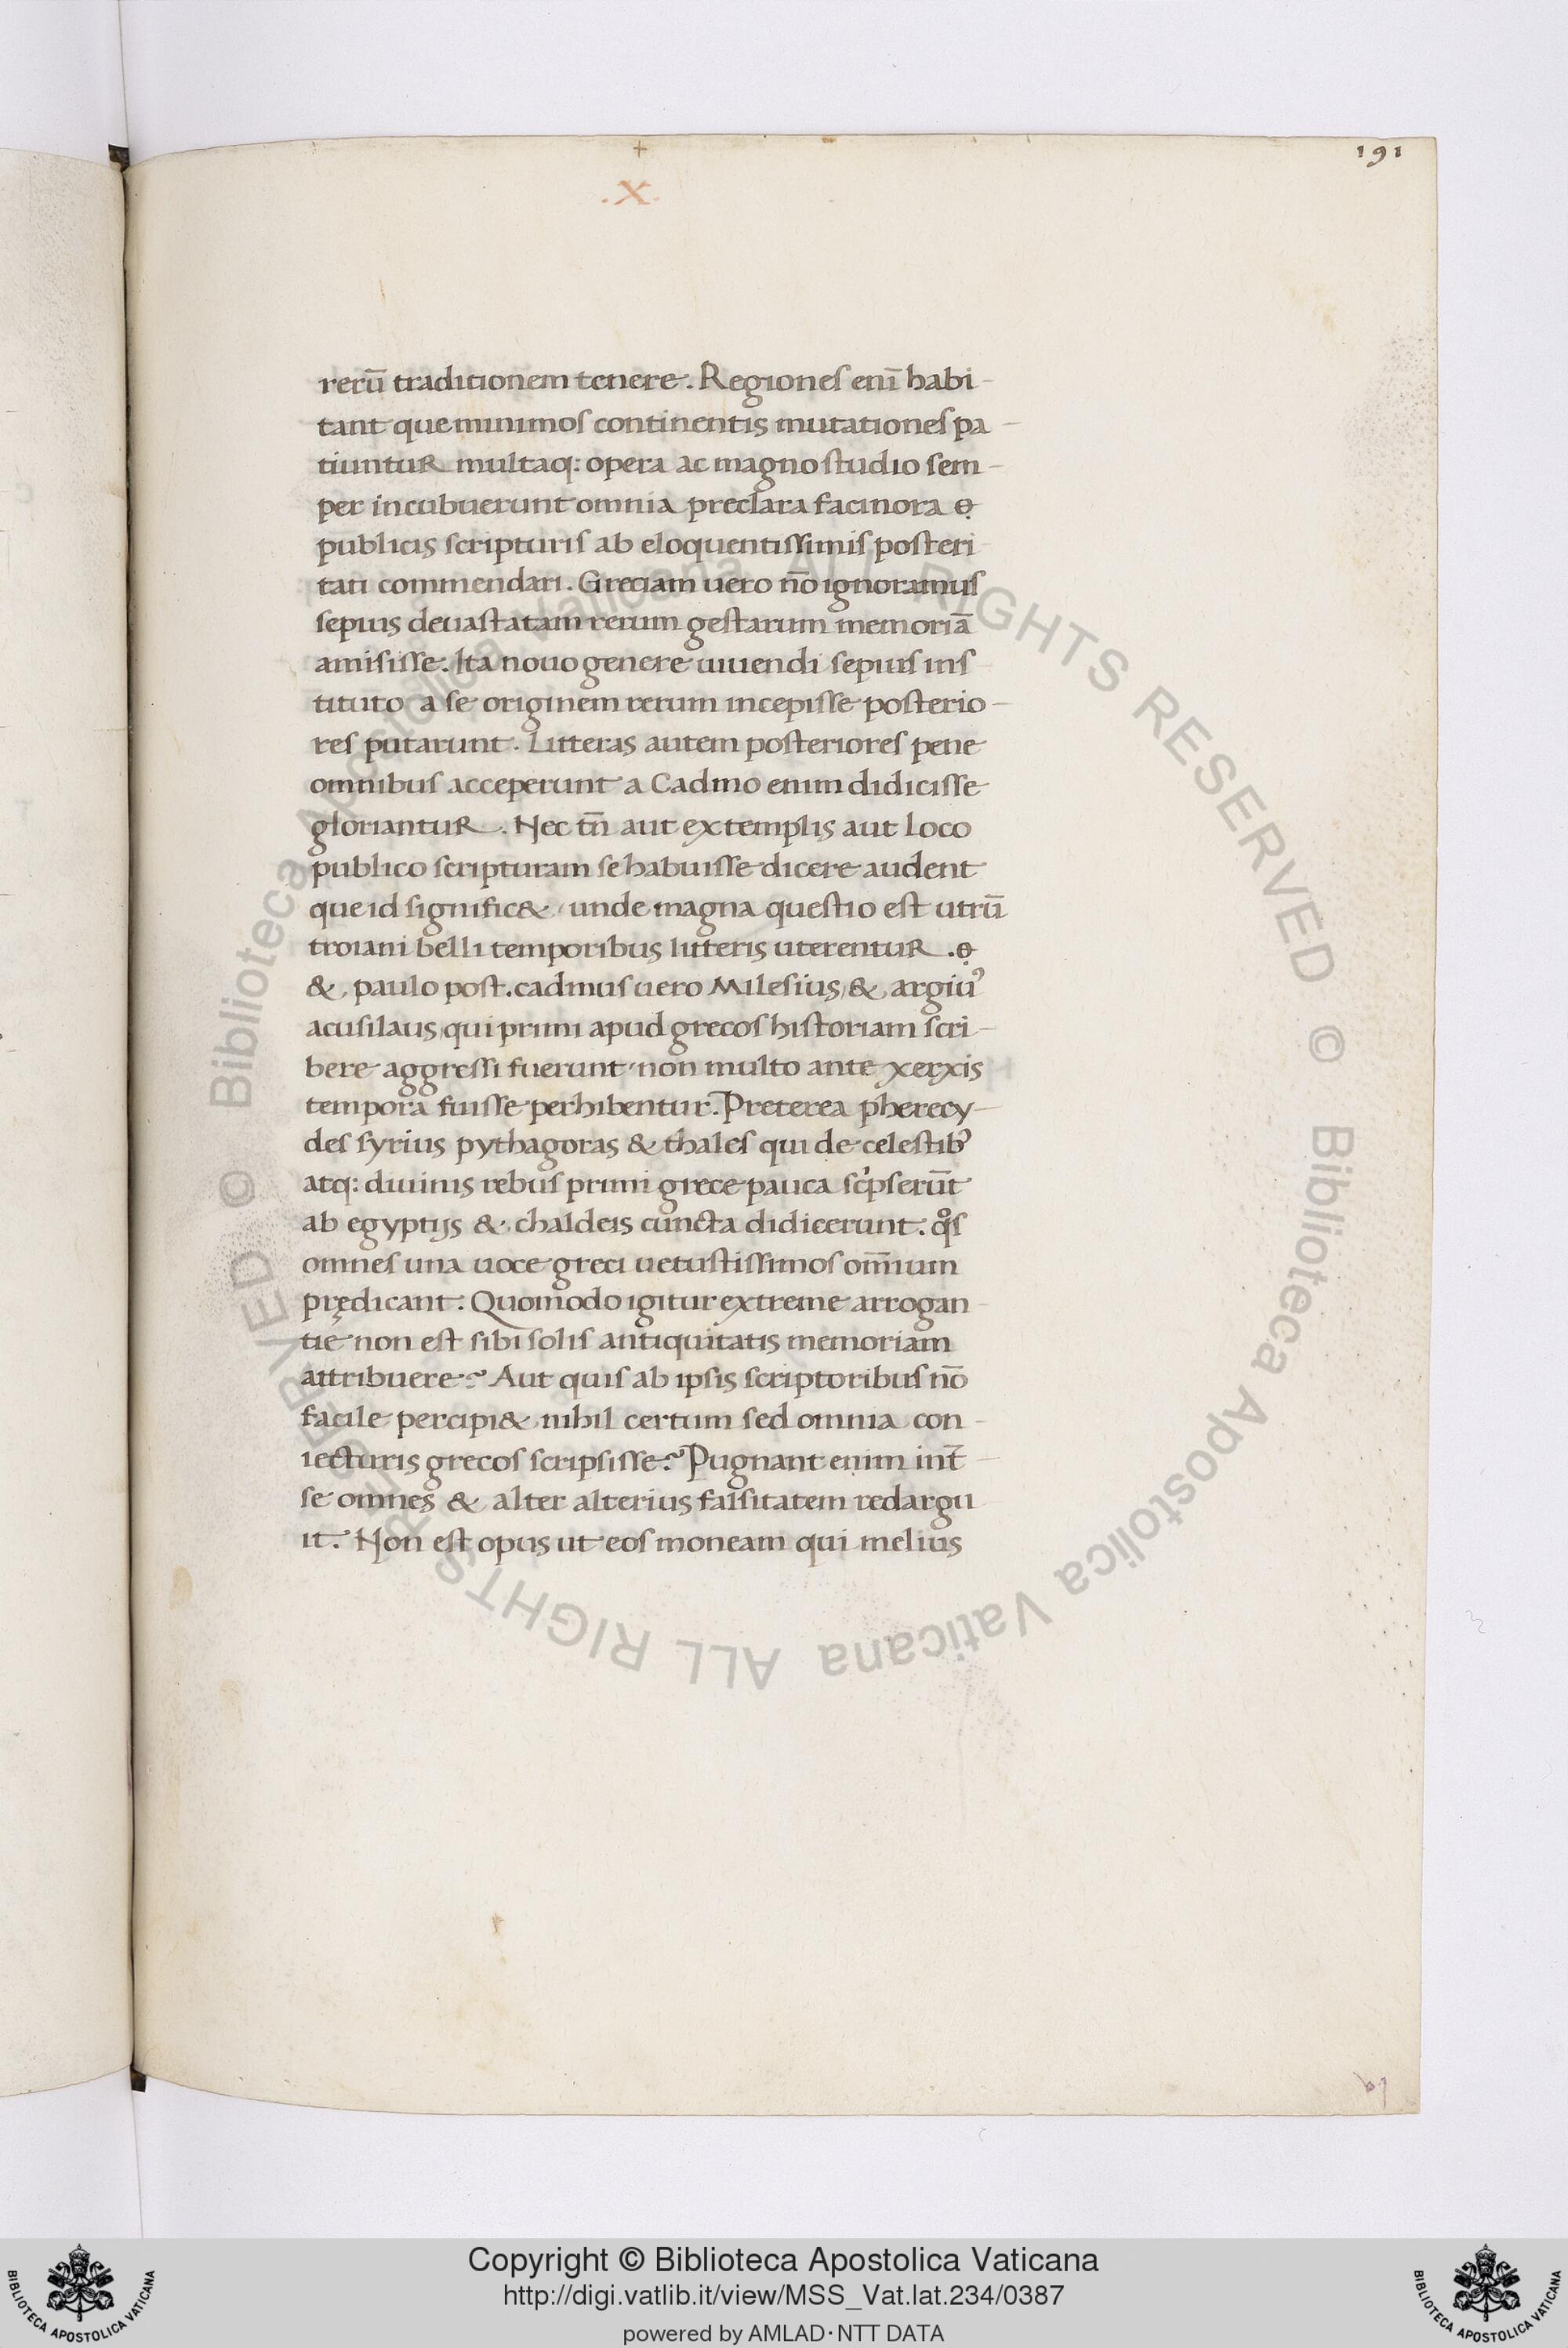 191
+
.X.
rerū traditionem tenere. Regiones enī habi-
tant que minimos continentis mutationes pa-
tiuntur multaq: opera ac magno studio sem-
per incubuerunt omnia preclara facinora e
publicis scripturis ab eloquentissimis posteri
tati commendari. Greciam uero nō ignoramus
sepius deuastatam rerum gestarum memoriā
amisisse. Ita nouo genere uiuendi sepius ins
tituto a se originem rerum incepisse posterio-
res putarunt. Litteras autem posteriores pene
omnibus acceperunt a Cadmo enim didicisse
gloriantur. Nec tn̄ aut ex templis aut loco
publico scripturam se habuisse dicere audent
que id signific& unde magna questio est utrū
troiani belli temporibus litteris uterentur.
& paulo post. cadmus uero Milesius, & argiuꝰ
acusilaus, qui primi apud grecos historiam scri-
bere aggressi fuerunt, non multo ante xerxis
tempora fuisse perhibentur. Preterea pherecy-
des syrius pythagoras & thales qui de celestibꝰ
atq: diuinis rebus primi grece pauca scͥpserūt
ab egyptijs & chaldeis cuncta didicerunt: qͦs
omnes una uoce greci uetustissimos om̄ium
prędicant. Quomodo igitur extreme arrogan
tię non est sibi solis antiquitatis memoriam
attribuere? Aut quis ab ipsis scriptoribus nō
facile percipi& nihil certum sed omnia con-
iecturis grecos scripsisse? Pugnant enim int̄
se omnes & alter alterius falsitatem redargu
it. Non est opus ut eos moneam qui melius
© Biblioteca Apostolica Vaticana ALL RIGHTS RESERVED © Biblioteca Apostolica Vaticana ALL RIGHTS RESERVED
Copyright © Biblioteca Apostolica Vaticana
http://digi.vatlib.it/view/MSS_Vat.lat.234/0387
powered by AMLAD·NTT DATA
BIBLIOTECA APOSTOLICA VATICANA
BIBLIOTECA APOSTOLICA VATICANA